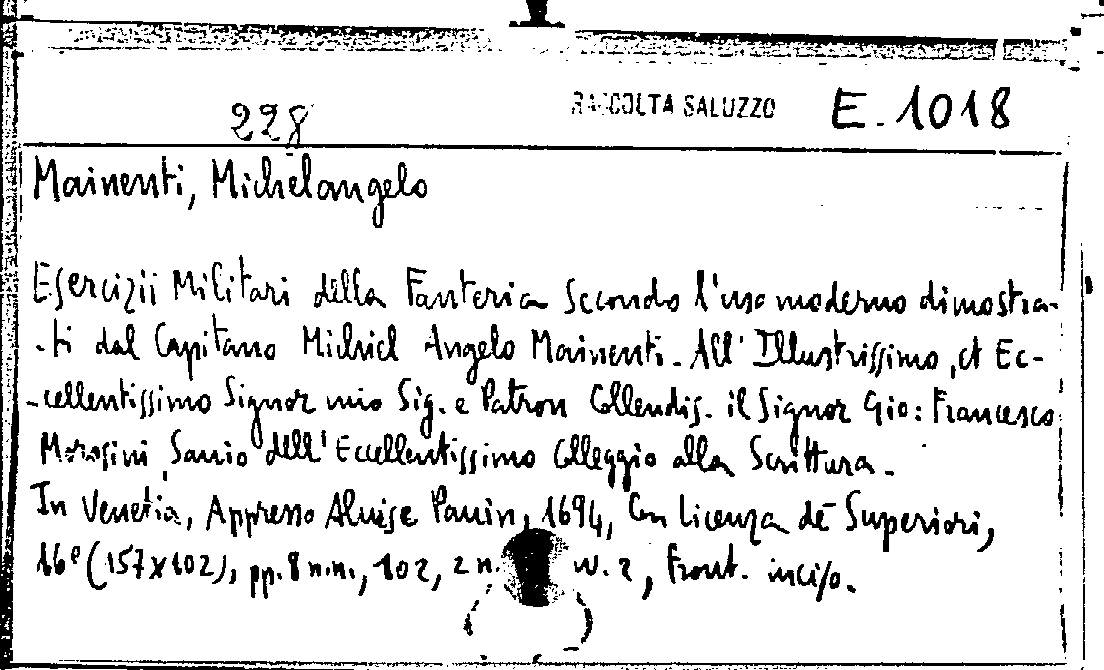 228 RACCOLTA SALUZZO E. 1018
Mainenti, Michelangelo
Esercizii Militari della Fanteria Secondo l'uso moderno dimostra-
-ti dal Capitano Michiel Angelo Mainenti. All' Illustrissimo, et Ec-
-cellentissimo Signor mio Sig. e Patron Collendis. il Signor Gio: Francesco
Morosini Savio dell' Eccellentissimo Colleggio alla Scrittura.
In Venetia, Appresso Aluise Pavin, 1694, Con Licenza de Superiori,
16° (157x102), pp. 8 n.n., 102, 2 n. 2, Front. inciso.